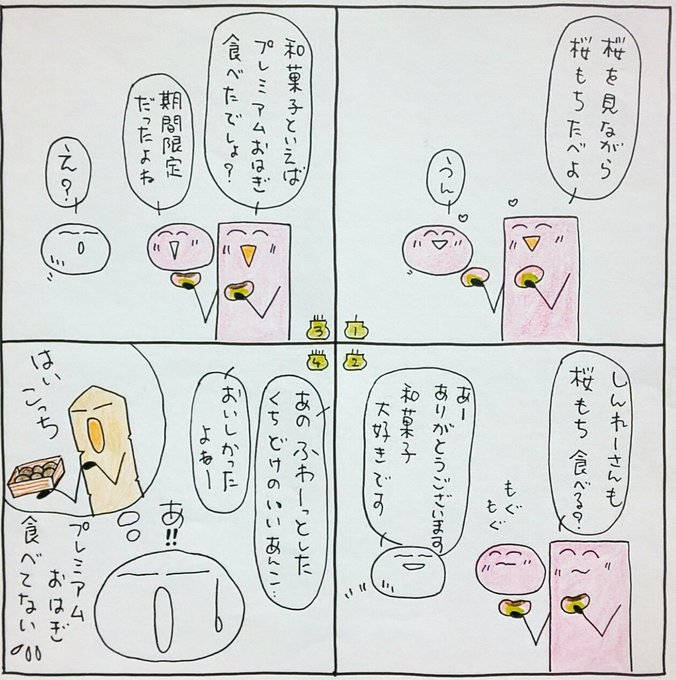 桜を見ながら
桜もちたべよ
うん
1
しんれーさんも
桜もち食べる?
もぐ
もぐ
あー
ありがとうございます
和菓子
大好きです
2
和菓子といえば
プレミアムおはぎ
食べたでしょ?
期間限定
だったよね
え?
3
あのふわーっとした
くちどけのいいあんこ…
おいしかった
よねー
あ!!
はい
こっち
プレミアム
おはぎ
食べてない
4